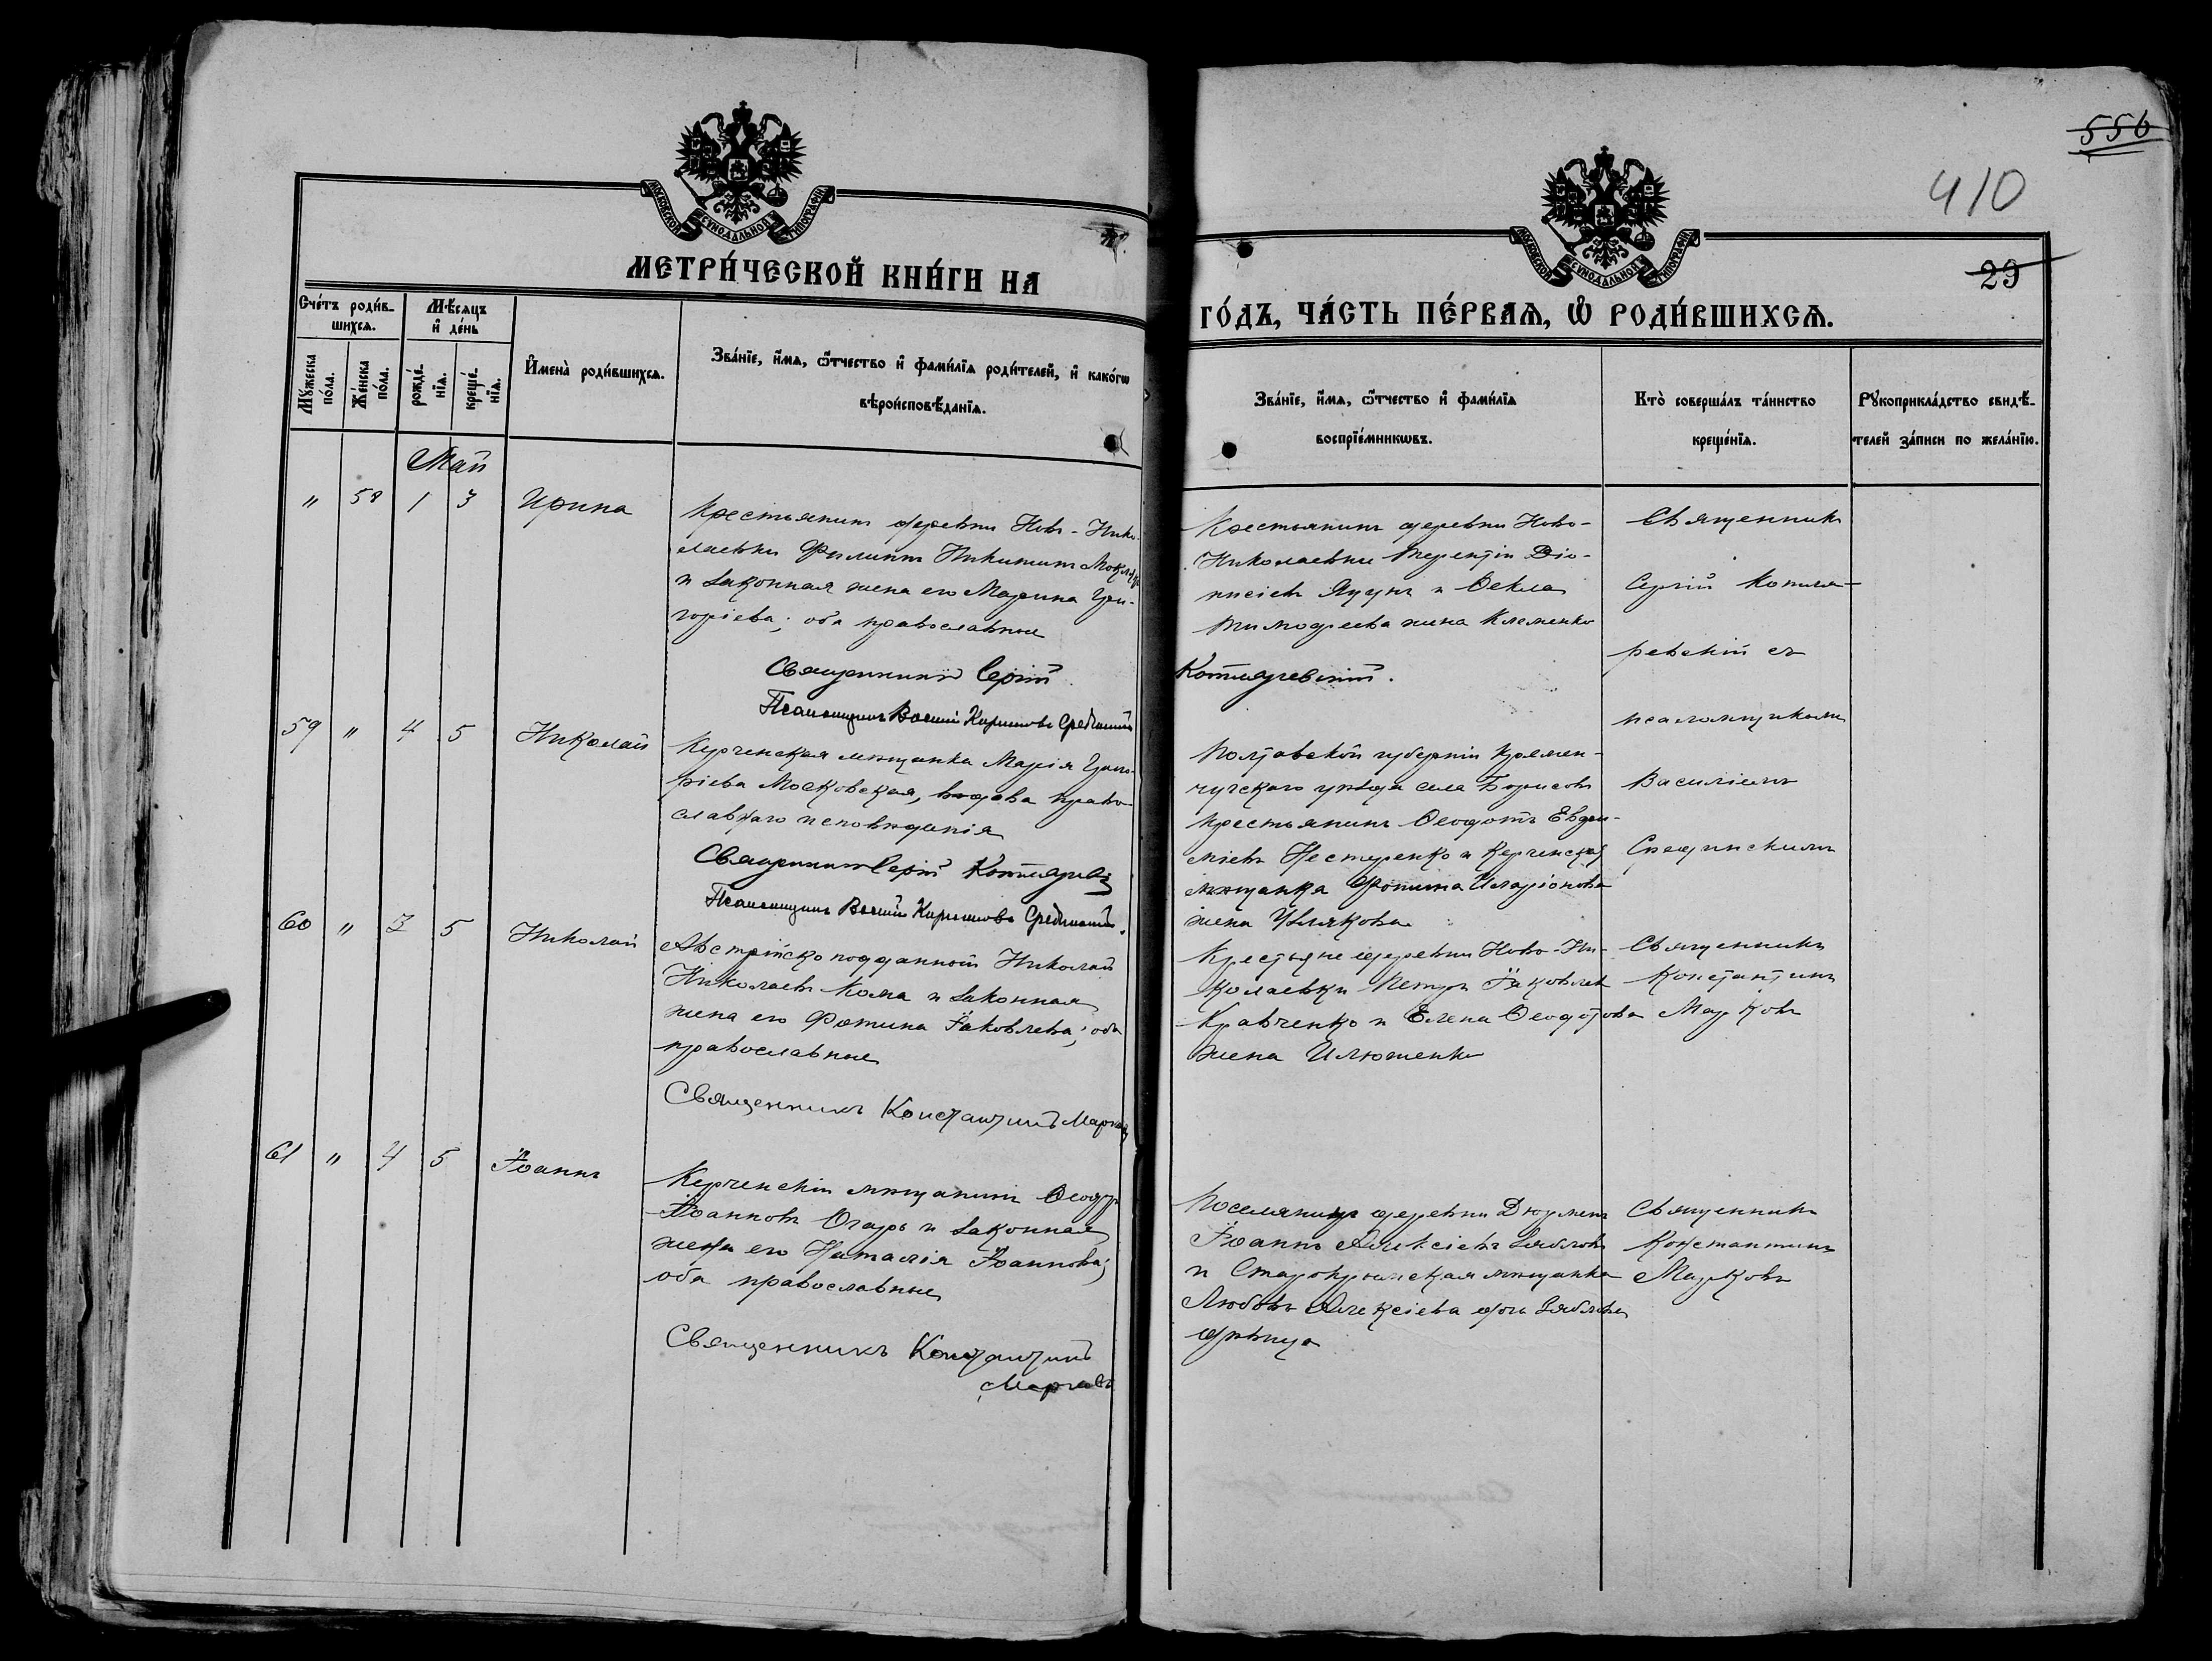 556
410
29
МОСКОВСКОЙ СУНОДАЛЬНОЙ ТИПОГРАФІИ
МОСКОВСКОЙ СУНОДАЛЬНОЙ ТИПОГРАФІИ
МЕТРИ́ЧЕСКОЙ КНИ́ГИ НА
ГО́ДЪ, ЧА́СТЬ ПЕ́РВАѦ, Ѡ РОДИ́ВШИХСѦ.
Сче́тъ роди́в-
шихсѧ.
Мꙋжеска
по́ла.
Же́нска
по́ла.
Мѣ́сѧцъ
и҆ де́нь
рожде́-
нїѧ.
креще́-
нїѧ.
И҆мена̀ роди́вшихсѧ.
Зва́нїе, и҆́мѧ, ѻ҆́тчество и҆ фами́лїѧ роди́телей, и҆ како́гѡ
вѣроисповѣ́данїѧ.
Зва́нїе, и҆́мѧ, ѻ҆́тчество и҆ фами́лїѧ
воспрїе́мникѡвъ.
Кто̀ соверша́лъ та́инство
креще́нїѧ.
Рꙋкоприкла́дство свидѣ́-
телей за́писи по жела́нїю.
Май
" 58 1 3 Ирина
Крестьянинъ деревни Ново-Нико-
лаевки Филиппъ Никитинъ
и законная жена его Марина Гри-
горіева; оба православные
Священникъ Сергій
Псаломщикъ Василій
Крестьянинъ деревни Ново-
Николаевки Терентій Діо-
нисіевъ Яцунъ и Ѳекла
Тимофеева жена Клеменко
Котляревскій.
Священникъ
Сергій Котля-
ревскій съ
псаломщикомъ
Василіемъ
Срединскимъ
59 " 4 5 Николай
Керченская мѣщанка Марія Григо-
ріева Московская, вдова право-
славнаго исповѣданія
Священникъ Сергій Котляревскій
Псаломщикъ Василій
Полтавской губерніи Кремен-
чугскаго уѣзда села Борисовъ
крестьянинъ Ѳеодотъ Евфи-
міевъ Нестеренко и Керченская
мѣщанка Фотина Иларіонова
жена
60 " 3 5 Николай
Австрійско подданной Николай
Николаевъ Кома и законная
жена его Фотина Іаковлева; оба
православные
Священникъ Константинъ Марковъ
Крестьяне деревни Ново-Ни-
колаевки Петръ Іаковлевъ
Кравченко и Елена Ѳеодотова
жена Илюшенко
Священникъ
Константинъ
Марковъ
61 " 4 5 Іоаннъ
Керченскій мѣщанинъ Ѳеодоръ
Іоанновъ Огарь и законная
жена его Наталія Іоаннова;
оба православные
Священникъ Константинъ
Марковъ
Поселянинъ деревни Дюрмень
Іоаннъ Алексіевъ Зябловъ
и Старокрымская мѣщанка
Любовь Алексіева дочь Зяблова
дѣвица
Священникъ
Константинъ
Марковъ